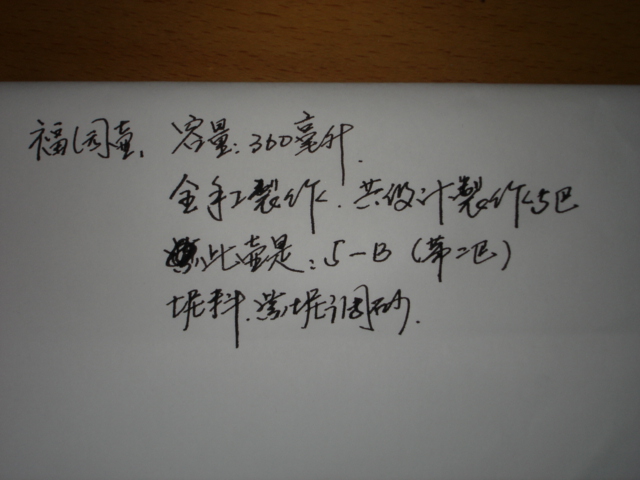 福园壶、容量:360毫升.
全手工製作.共设计製作5巴
此壶是:5-B(第二巴)
坭料.紫坭调砂.